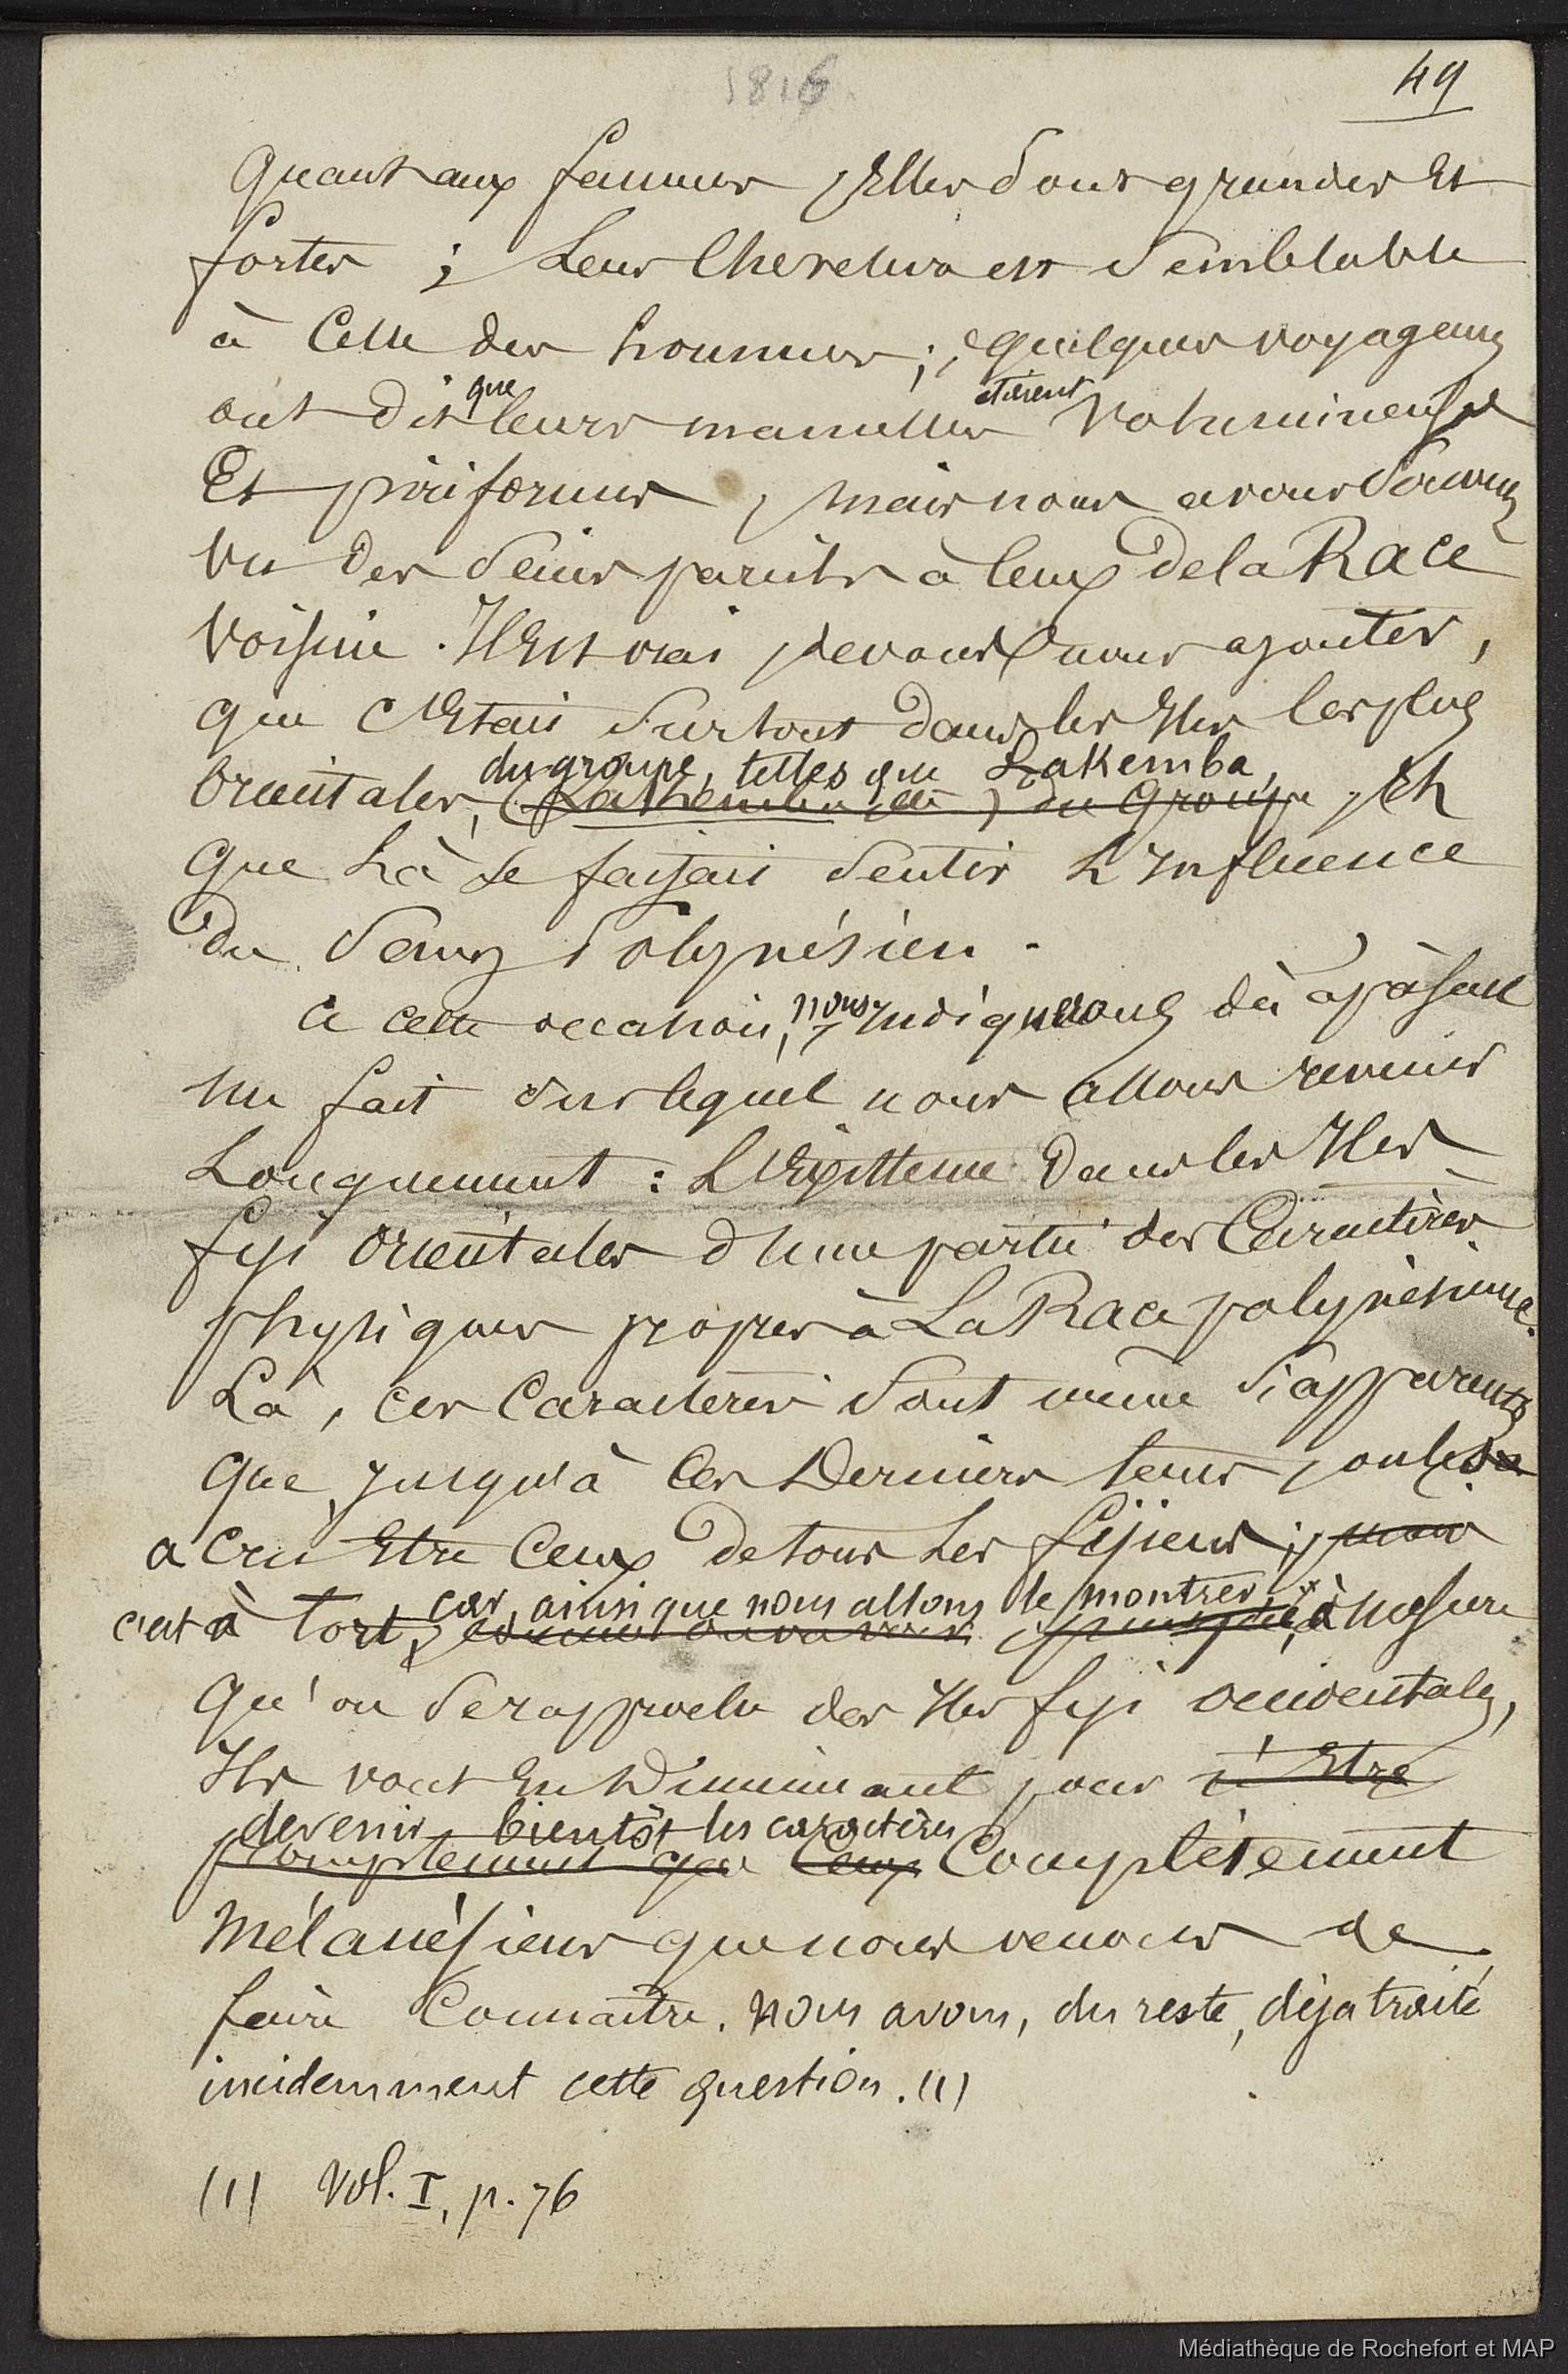 1816
49
Quant aux femmes, Elles sont grandes Et
fortes ; Leur Chevelure est semblable
à Celle des hommes ; quelques voyageurs
ont dit que leurs mamelles étaient volumineuses
Et piriformes, mais nous avons souvent
vu des seins pareils à Ceux de la Race
voisine. Il Est vrai, devons nous ajouter,
que C'Etait surtout dans les Iles les plus
du groupe, telles que Lakemba,
Orientales, (Lakemba, etc) du Groupe, Et
que Là se faisait sentir L'Influence
du sang Polynésien.
A cette occasion, nous Indiquerons dès à présent
un fait sur lequel nous allons revenir
Longuement : L'Existence dans les Iles
fiji Orientales d'une partie des Caractères
physiques propres à La Race polynésienne.
Là, ces Caractères sont même si apparents
que, jusqu'à Ces Derniers tems, on les
a cru Etre Ceux de tous Les fijiens ; mais
car, ainsi que nous allons le montrer,
c'est à tort, puisque, à mesure
qu'on se rapproche des Iles fiji occidentales,
Ils vont En Diminuant pour n'Etre
devenir bientôt les caractères
Complètement que Ceux Complètement
Mélanésiens que nous venons de
faire Connaître. Nous avons, du reste, déja traité
incidemment cette question. (1)
(1) Vol. I, p. 76
Médiathèque de Rochefort et MAP